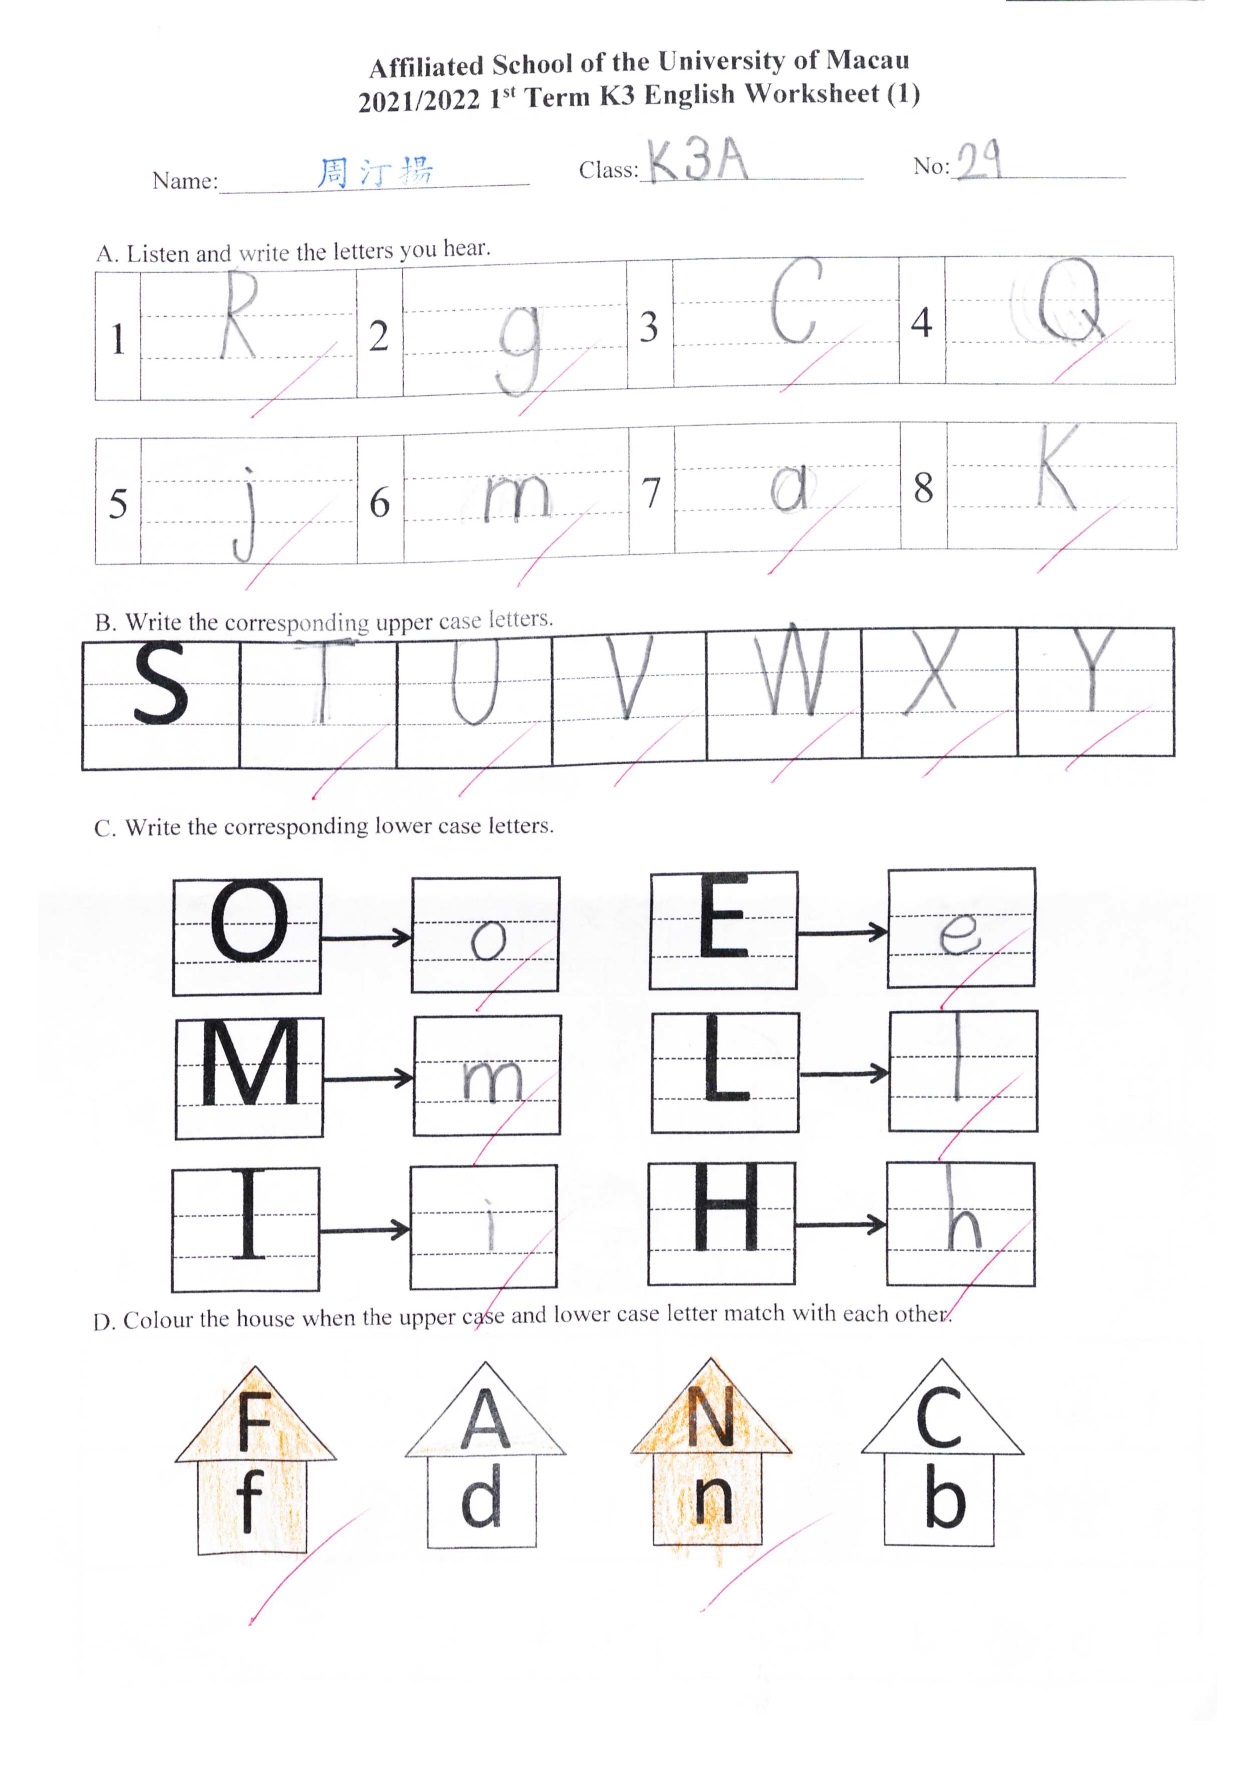 Affiliated School of the University of Macau
2021/2022 1st Term K3 English Worksheet (1)
Name: 周汀揚 Class: K3A No: 29
A. Listen and write the letters you hear.
1 R 2 g 3 C 4 Q
5 j 6 m 7 a 8 K
B. Write the corresponding upper case letters.
S T U V W X Y
C. Write the corresponding lower case letters.
O o E e
M m L l
I i H h
D. Colour the house when the upper case and lower case letter match with each other.
F A N C
f d n b